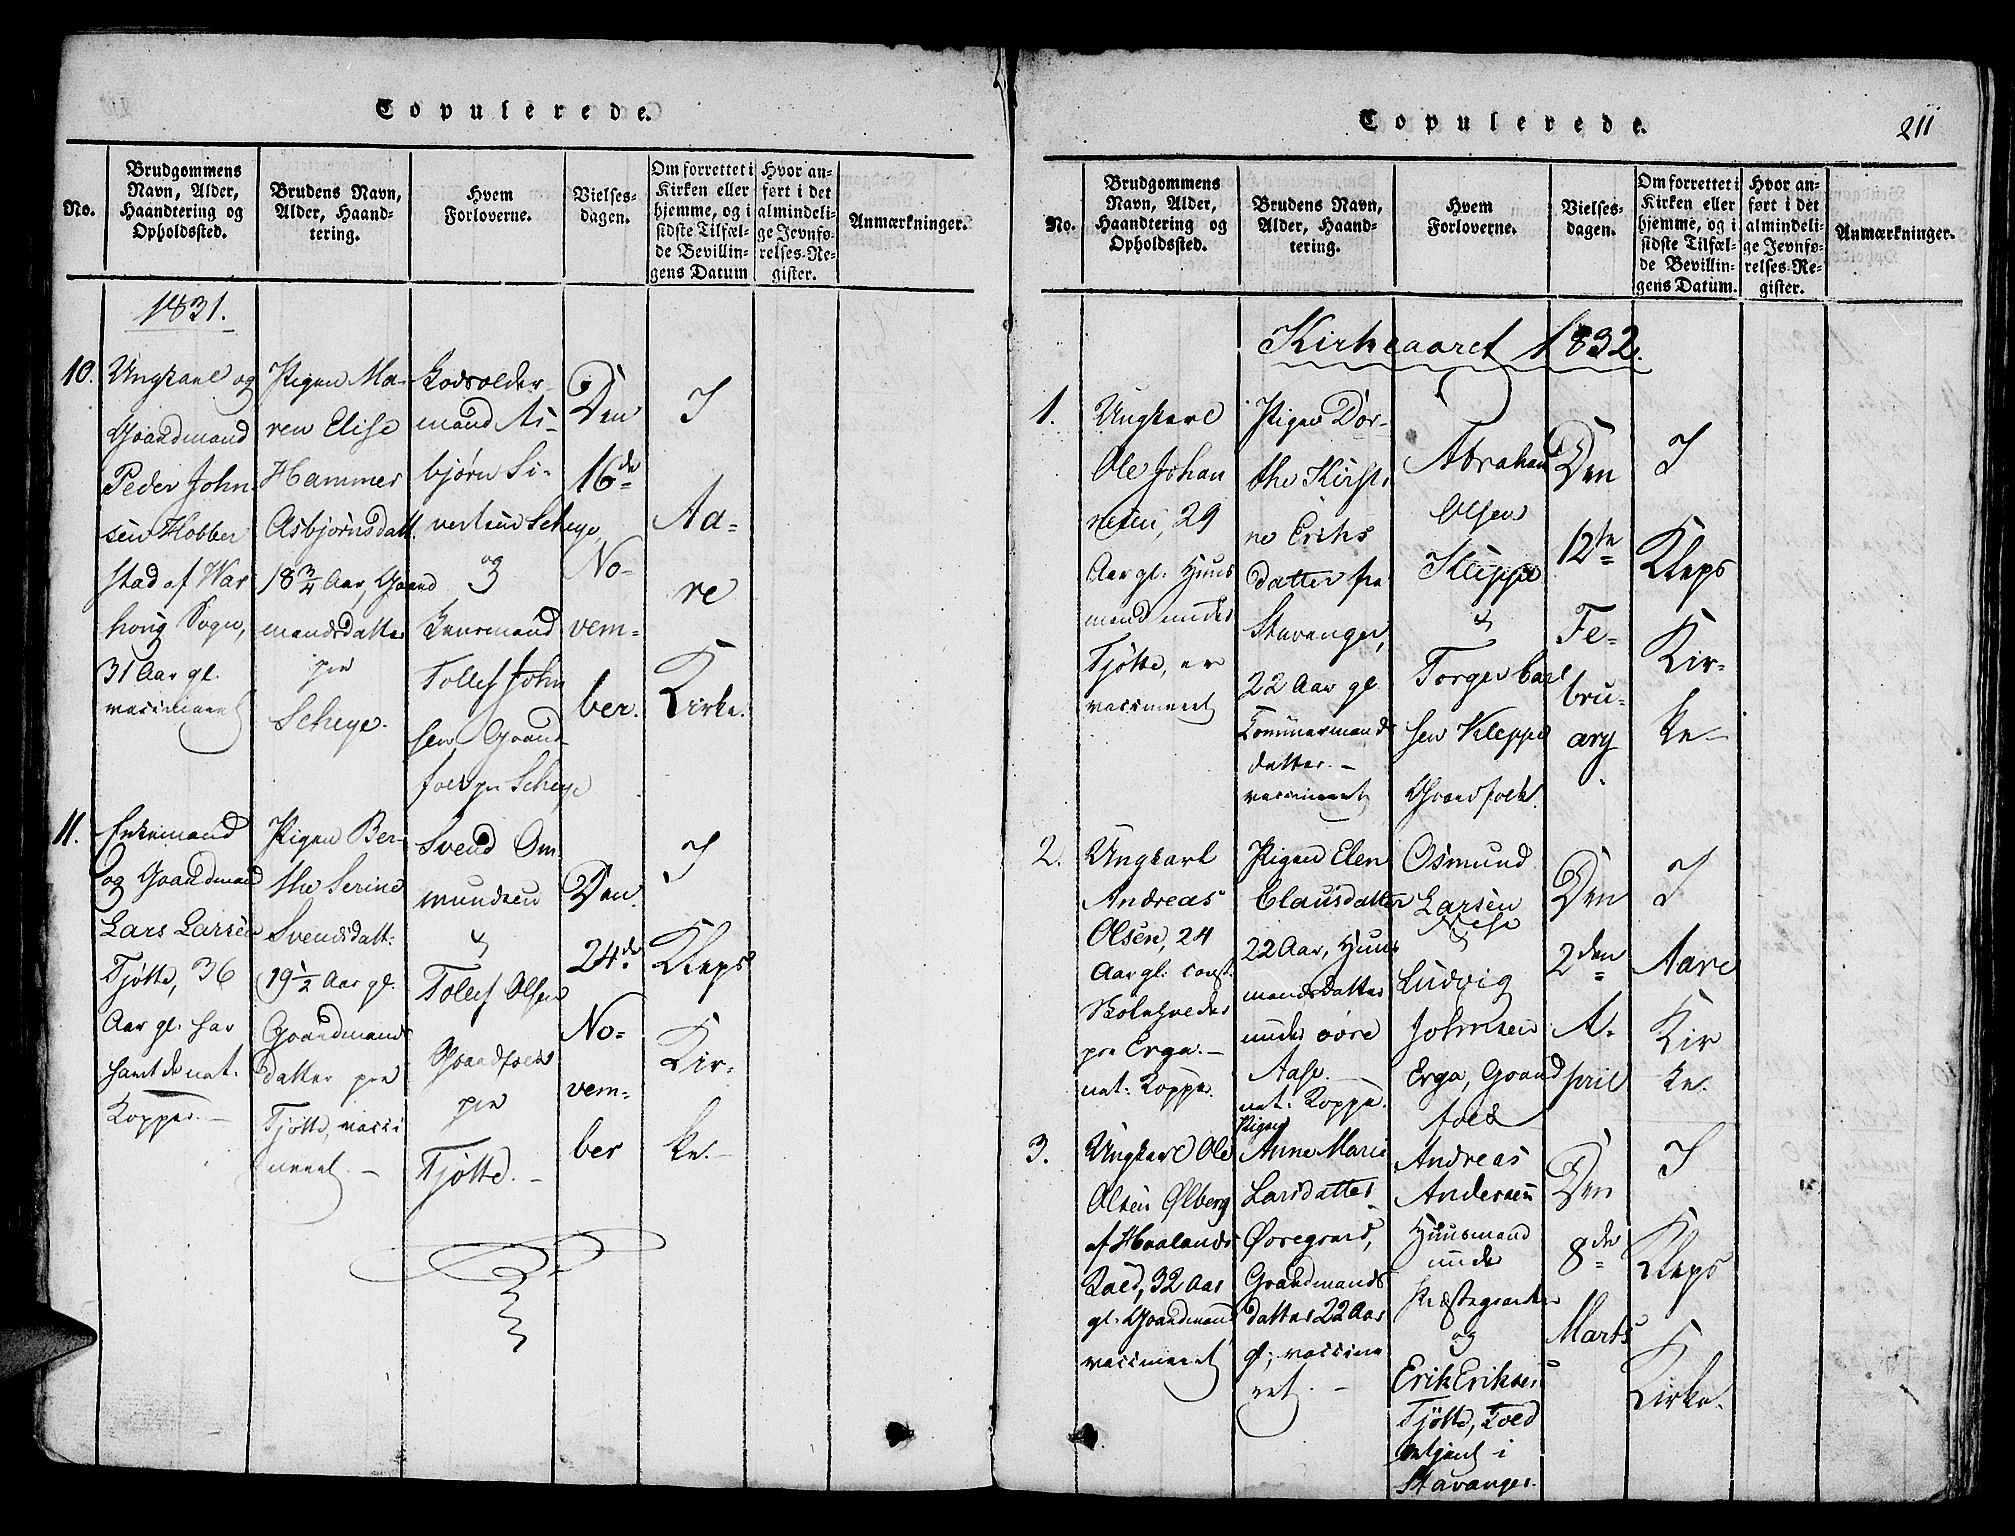 Copulerede.
No.
Brudgommens
Navn, Alder,
Haandtering og
Opholdssted.
Brudens Navn,
Alder, Haand-
tering.
Hvem
Forloverne.
Vielses-
dagen.
Om forrettet i
Kirken eller
hjemme, og i
sidste Tilfæl-
de Bevillin-
gens Datum
Hvor an-
ført i det
almindeli-
ge Jevnfø-
relses-Re-
gister.
Anmærkninger.
1831.
10.
Ungkarl og
Gaardmand
Peder John-
sen Hobber
stad af War
houg Sogn,
31 Aar gl.
vaccineret
Pigen Ma-
ren Elise
Hammer
Asbjørnsdatt.
18 3/4 Aar, Gaard
mandsdatter
paa
Scheye.
mand As-
bjørn Si-
vertsen Scheye,
og
Tollef John
sen Gaard
folk paa Scheye
Den
16de
No-
vem-
ber.
I
Aa-
re
Kirke.
11.
Enkemand
og Gaardmand
Lars Larsen
Tjøtte, 36
Aar gl. har
havt de nat.
Kopper. -
Pigen Ber-
the Serine
Svendsdatt.
19 1/2 Aar gl.
Gaardmands
datter paa
Tjøtte, vacci
neret. -
Svend Om
mundsen
&
Tollef Olsen
Gaardfolk
paa
Tjøtte. -
Den
24de
No-
vem-
ber
I
Kleps
Kir-
ke. -
Copulerede.
211
No.
Brudgommens
Navn, Alder,
Haandtering og
Opholdssted.
Brudens Navn,
Alder, Haand-
tering.
Hvem
Forloverne.
Vielses-
dagen.
Om forrettet i
Kirken eller
hjemme, og i
sidste Tilfæl-
de Bevillin-
gens Datum.
Hvor an-
ført i det
almindeli-
ge Jevnfø-
relses-Re-
gister.
Anmærkninger.
Kirkeaaret 1832.
1.
Ungkarl
Ole Johan
nesen, 29
Aar gl. Huus
mand under
Tjøtte, er
vaccineret
Pigen Dor-
the Kirsti-
ne Eriks
datter fra
Stavanger,
22 Aar gl.
Tømmermands
datter. -
vaccineret
Abraham
Olsen
Kleppe
&
Torger Carl
sen Kleppe
Gaardfolk.
Den
12te
Fe-
bru-
ary
I
Kleps
Kir-
ke -
2.
Ungkarl
Andreas
Olsen, 24
Aar gl. const.
Skoleholder
paa Erga. -
nat. Kopper.
Pigen Elen
Clausdatter
22 Aar, Huus
mandsdatter
under øvre
Aase.
nat. Kopper.
Osmund
Larsen
Nese
&
Ludvig
Johnsen
Erga, Gaard
folk
Den
2den
A-
pril
I
Aare
Kir
ke.
3.
Ungkarl Ole
Olsen Ølberg
af Haalands
Præd, 32 Aar
gl. Gaardmand
vaccineret
Pigen
Anne Marie
Larsdatter
Øvregaard,
Gaardmands
datter 22 Aar
gl, vaccine
ret. -
Andreas
Andersen
Huusmand
under
Præstegaarden
og
Erik Eriksen
Tjøtte,
betjent i
Stavanger.
Den
8de
Marts
I
Kleps
Kirke.